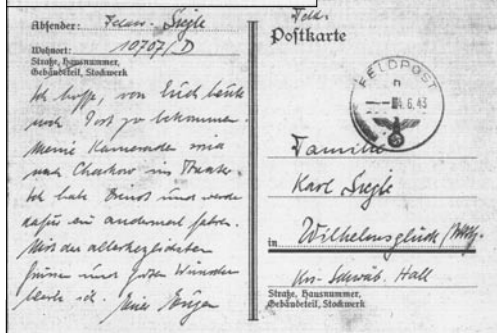 Absender: Feldw. Siegle
10707/D
Wohnort:
Straße, Hausnummer,
Gebäudeteil, Stockwerk
Ich hoffe, von Euch heute
noch Post zu bekommen.
Meine Kameraden sind
nach Charkow ins Theater.
Ich habe Dienst und werde
dafür ein andermal fahren.
Mit den allerherzlichsten
Grüssen und guten Wünschen
bleibe ich Euer Eugen
Feld-
Postkarte
FELDPOST
n
4.6.43
Familie
Karl Siegle
in Wilhelmsglück
Krs. Schwäb. Hall
Straße, Hausnummer,
Gebäudeteil, Stockwerk